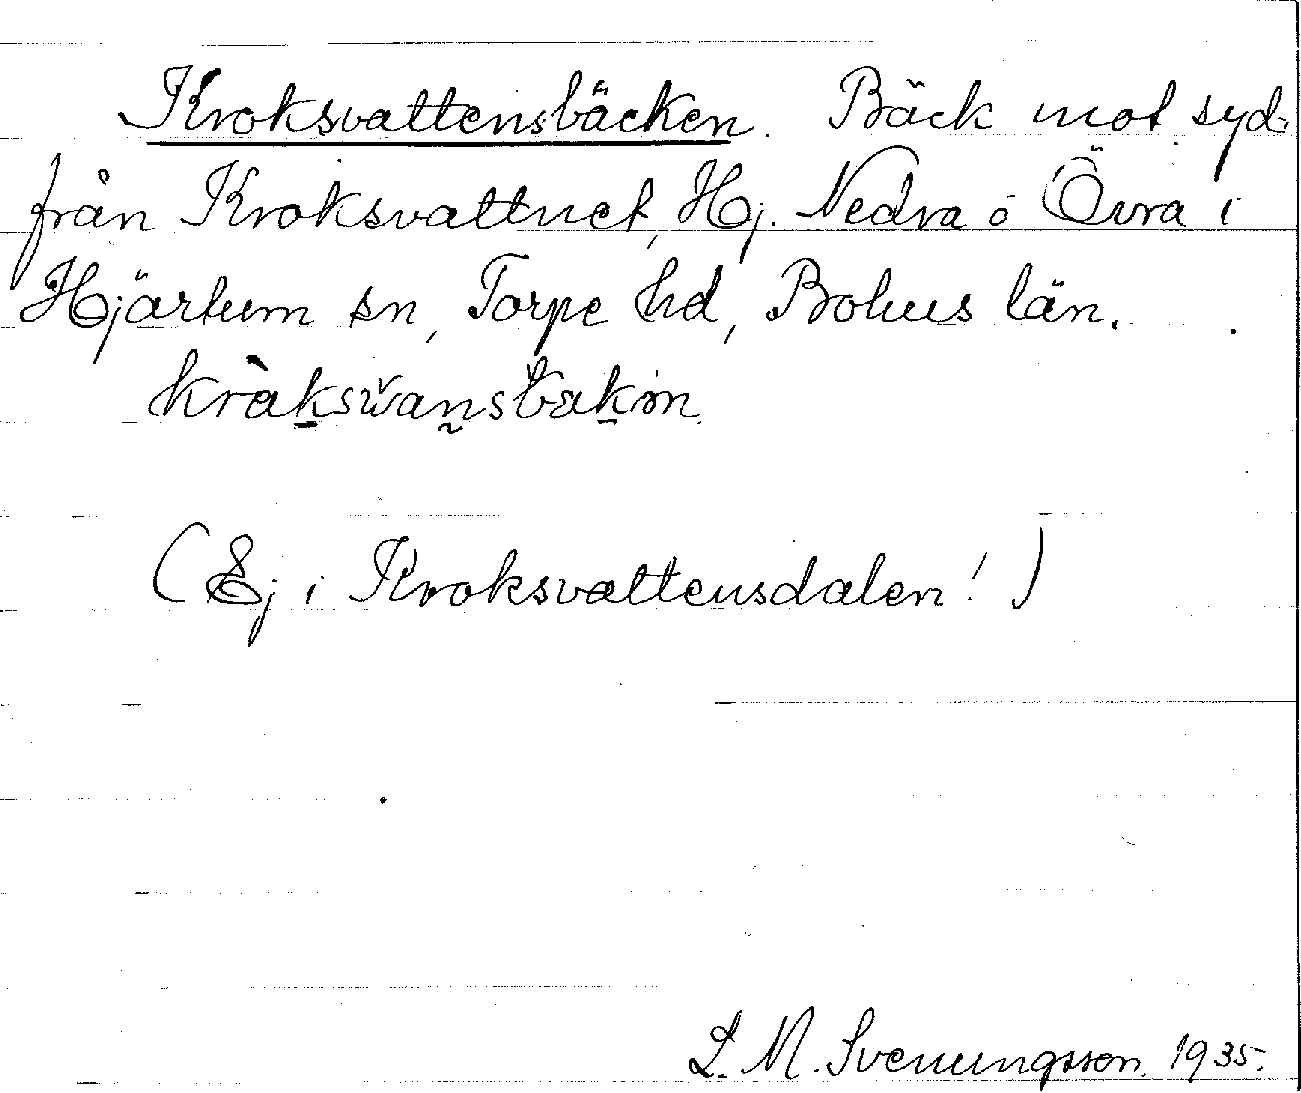 Kroksvattensbäcken. Bäck mot syd,
från Kroksvattnet, Hj. Nedra o Övra i
Hjärtum sn, Torpe hd, Bohus län.
(Ej i Kroksvattensdalen!)
L. M. Svenungsson. 1935.